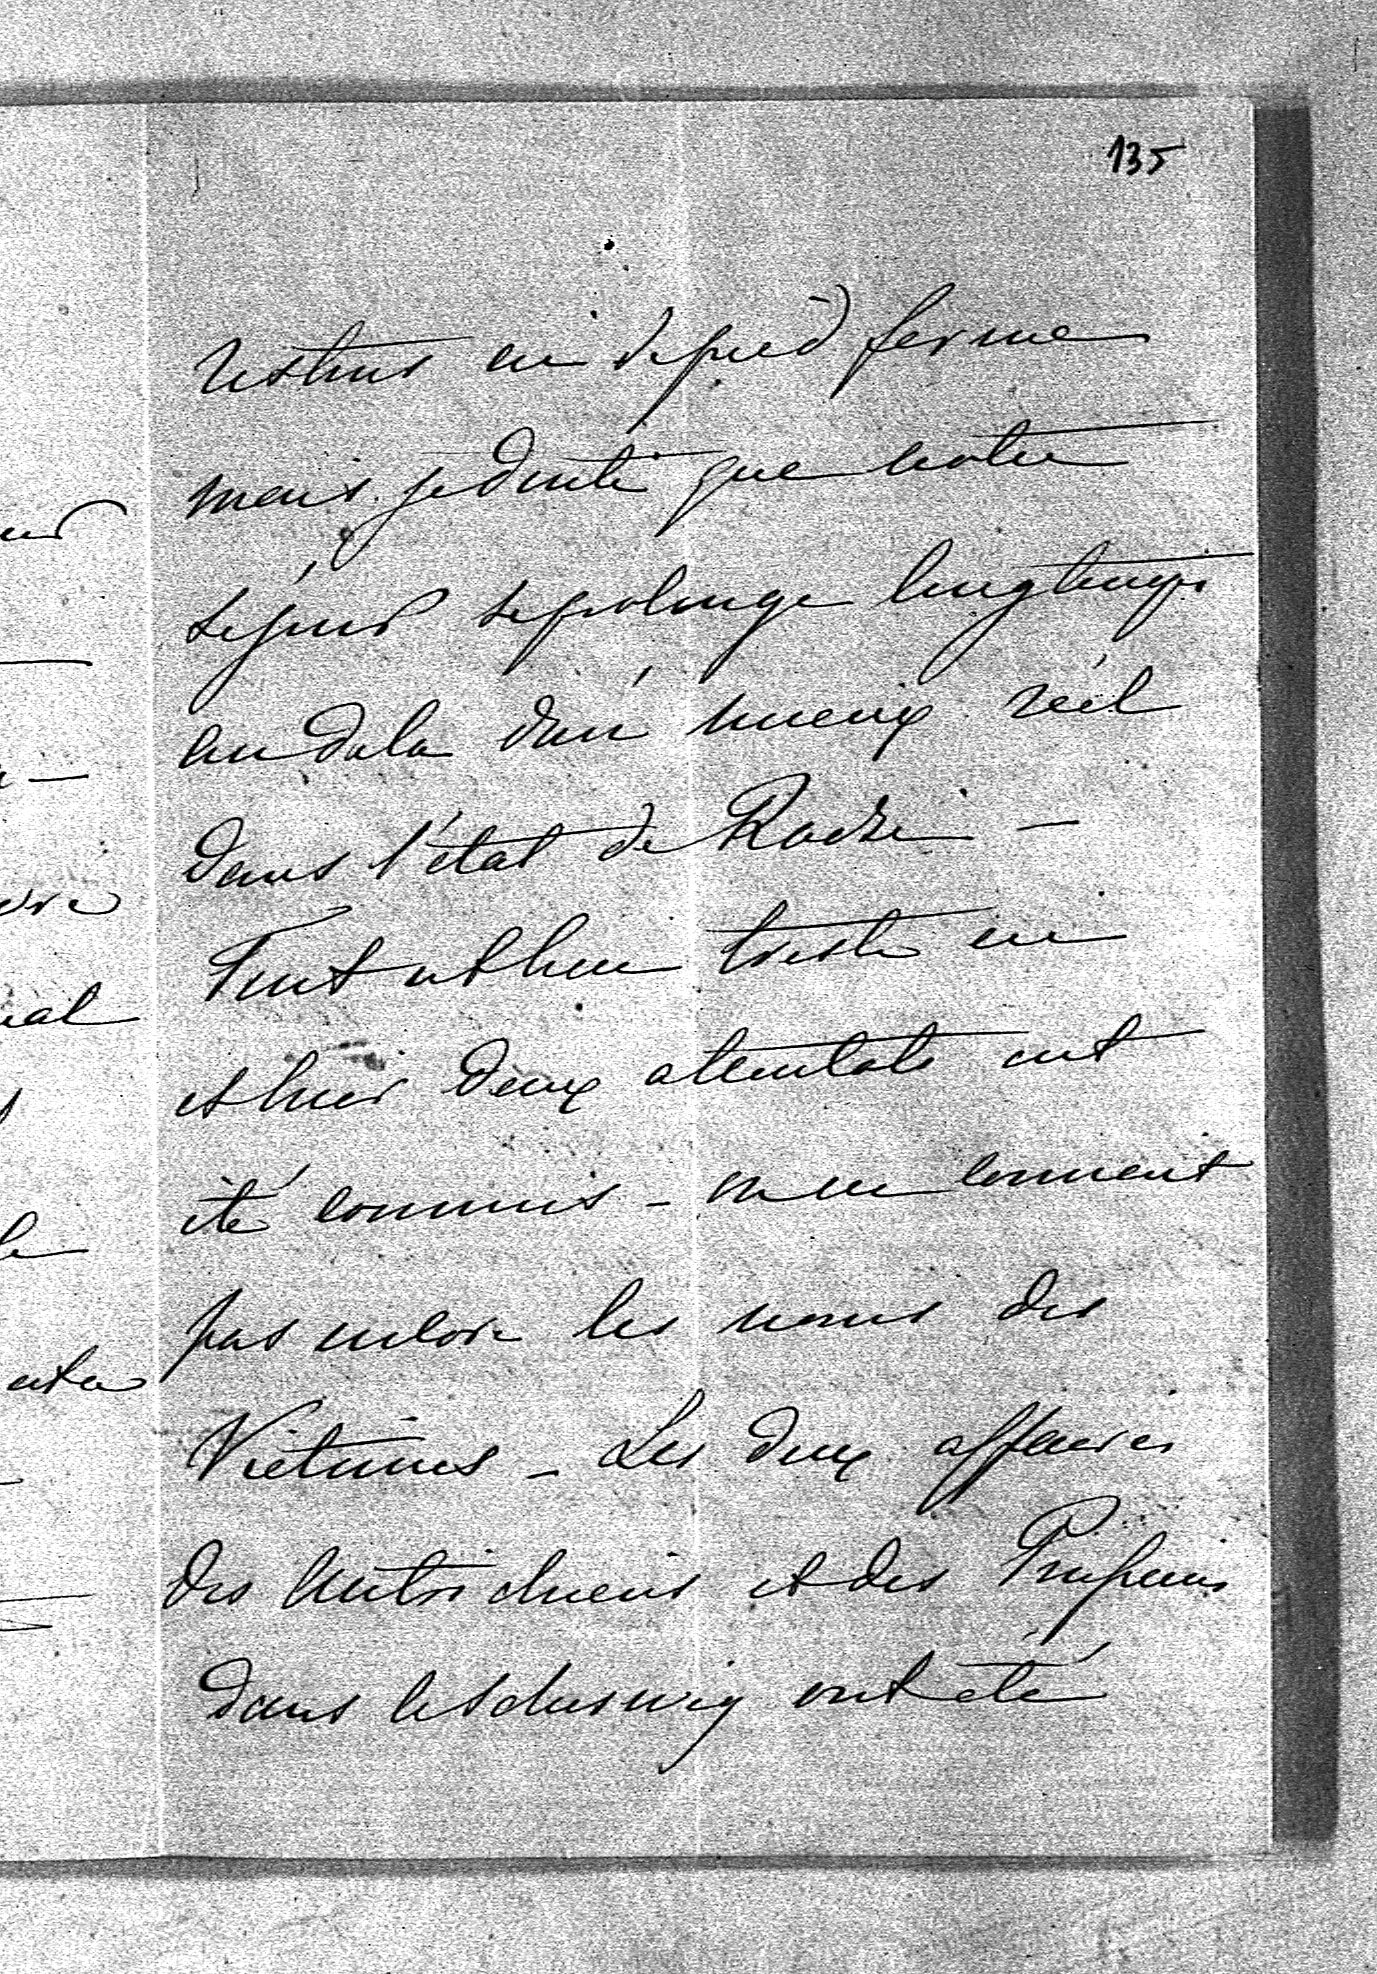 135
restons ici de pied ferme
mais je doute que notre
séjour se prolonge longtemps
au dela d'un mieux réel
dans l'état de
Tout est bien triste ici
et hier deux atentats ont
été commis - on ne connait
pas encore les noms des
Victimes - Les deux affaires
des Autrichiens et des Prussiens
dans le Schleswig ont été